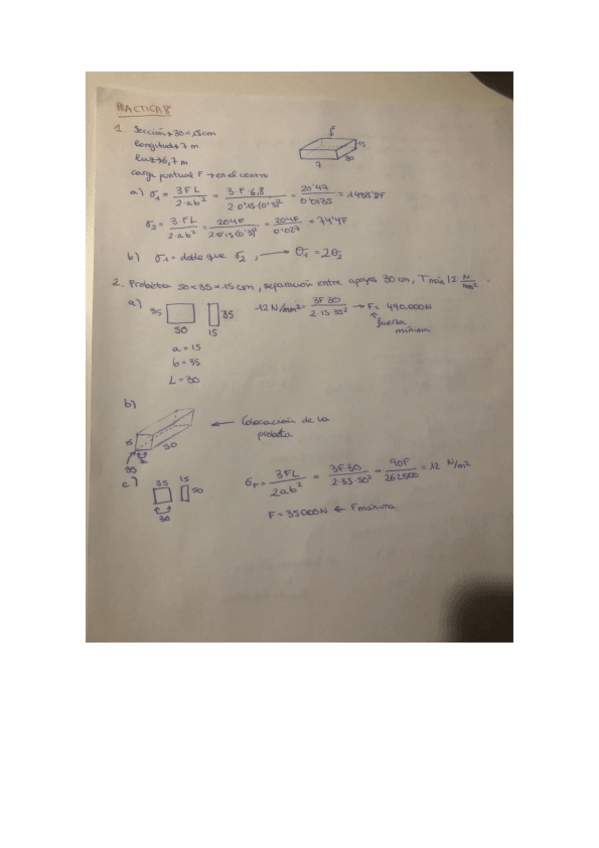 PRACTICA 8
1. Sección → 30 × 15 cm
Longitud → 7 m
Luz → 6,7 m
carga puntual F → en el centro
F
15
30
7
a) σ₁ = 3FL / 2·ab² = 3·F·6,8 / 2·0'15(0'3)² = 20'4F / 0'0135 =
σ₂ = 3·FL / 2·ab² = 20'4F / 2·0'15(0'3)² = 20'4F / 0'027 = 744F
b) σ₁ = doble que σ₂, → σ₁ = 2σ₂
2. Probeta 50 × 35 × 15 cm, separación entre apoyos 30 cm, T máx 12 N/mm².
a) 35 50 35 15
12 N/mm² = 3F·30 / 2·15·35² → F = 490.000N
fuerza
mínima
a = 15
b = 35
L = 30
b)
← Colocación de la
probeta
50
c) 35 15 50
σF = 3FL / 2ab² = 3F·30 / 2·35·50² = 90F / = 12 N/m²
F = 35000N ←